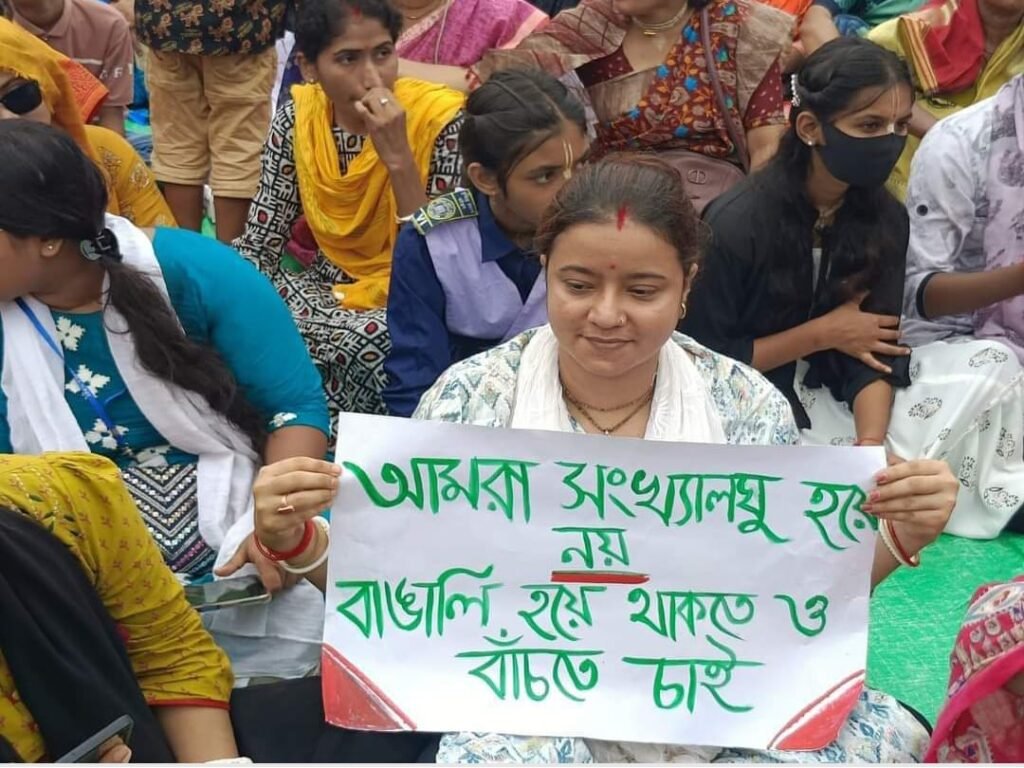 আমরা সংখ্যালঘু হয়ে
নয়
বাঙালি হয়ে থাকতে ও
বাঁচতে চাই